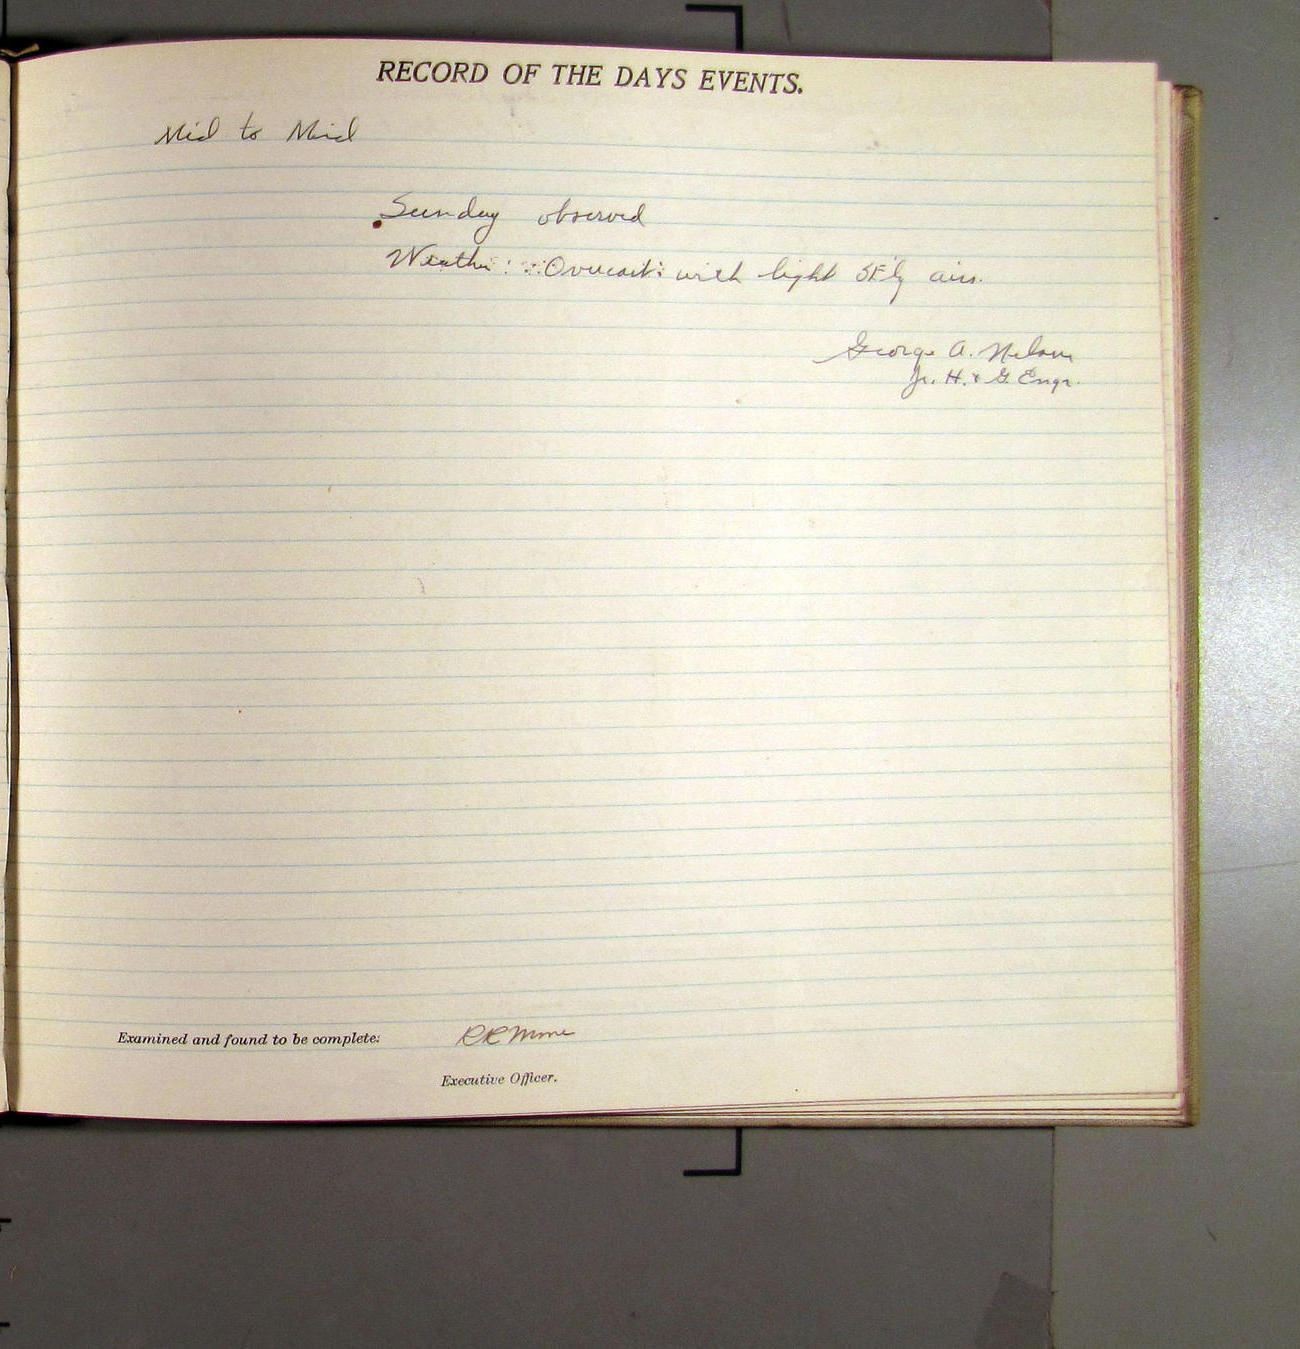 RECORD OF THE DAYS EVENTS.
Mid to Mid
Sunday observed
Weather: Overcast: with light SE'ly airs.
George A. Nelson
Jr. H. & G. Engr.
Examined and found to be complete:
Executive Officer.